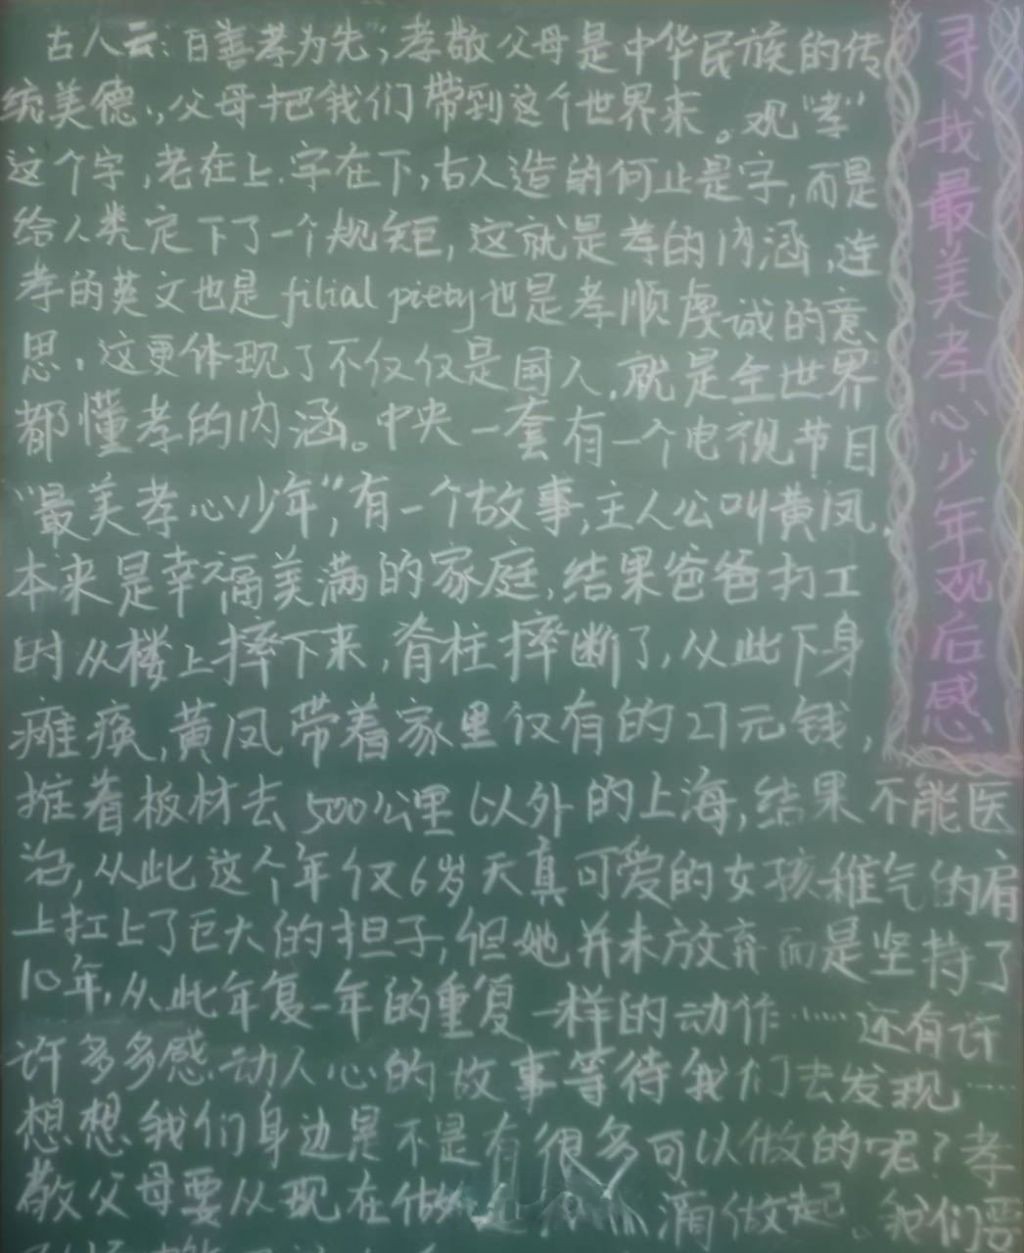 寻找最美孝心少年观后感
古人云:百善孝为先,孝敬父母是中华民族的传
统美德.,父母把我们带到这个世界来。观“孝”
这个字,老在上.字在下,古人造的何止是字,而是
给人类定下了一个规矩,这就是孝的内涵,连
孝的英文也是filial piety也是孝顺虔诚的意
思,这更体现了不仅仅是国人,就是全世界
都懂孝的内涵。中央一套有一个电视节目
“最美孝心少年”,有一个故事,主人公叫黄凤,
本来是幸福美满的家庭,结果爸爸打工
时从楼上摔下来,脊柱摔断了,从此下身
瘫痪,黄凤带着家里仅有的27元钱,
推着板材去500公里以外的上海,结果不能医
治,从此这个年仅6岁天真可爱的女孩稚气的肩
上扛上了巨大的担子,但她并未放弃而是坚持了
10年,从此年复一年的重复一样的动作……还有许
许多多感动人心的故事等待我们去发现……
想想我们身边是不是有很多可以做的呢?孝
敬父母要从现在做 滴做起。我们要